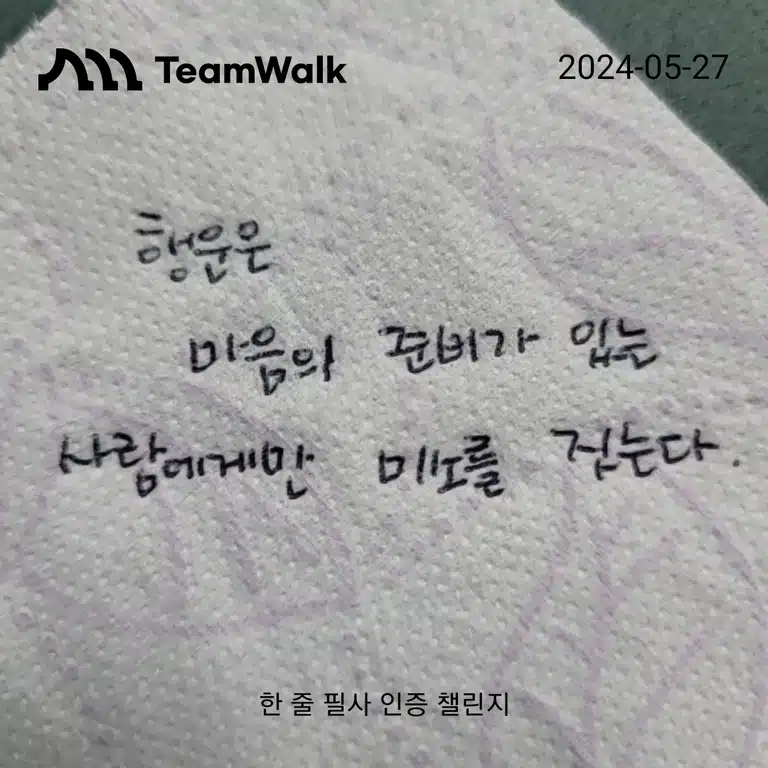 TeamWalk
2024-05-27
행운은
마음의 준비가 있는
사람에게만 미소를 짓는다.
한 줄 필사 인증 챌린지